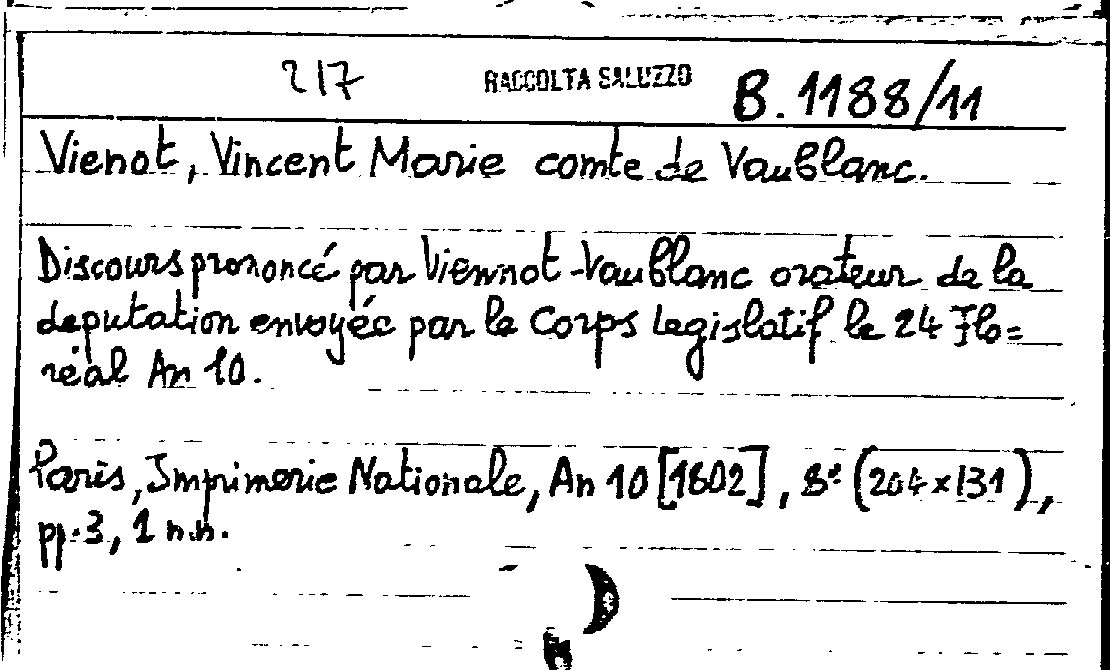 217 RACCOLTA SALUZZO B. 1188/11
Vienot, Vincent Marie comte de Vaublanc.
Discours prononcé par Viennot-Vaublanc orateur de la
deputation envoyée par le Corps Legislatif le 24 Flo=
réal An 10.
Paris, Imprimerie Nationale, An 10 [1802], 8° (204x131),
pp. 3, 1 n.n.